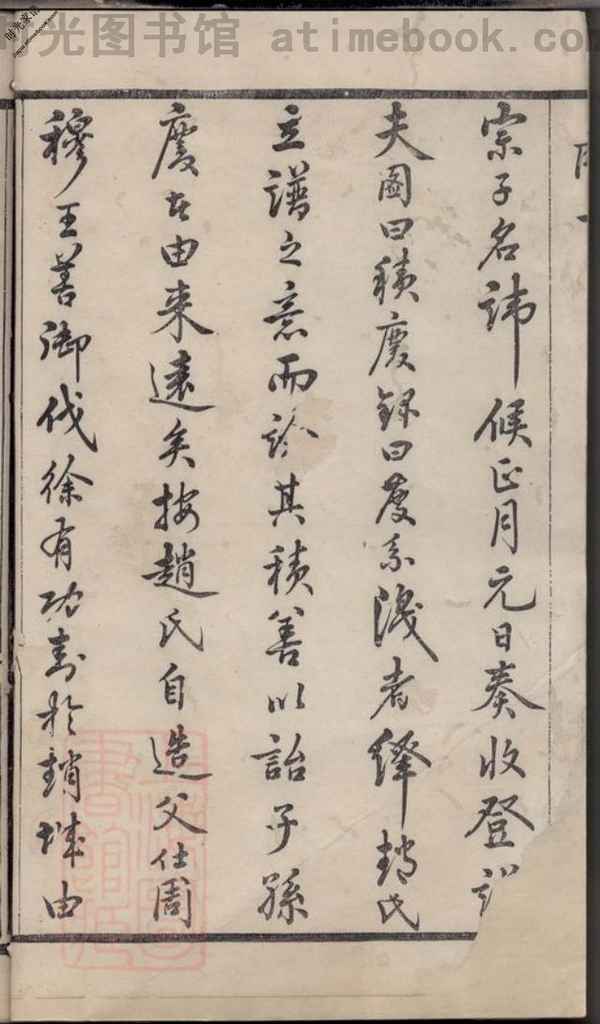 时光图书馆 atimebook.com
宗子名讳候正月元日奏收登
夫图曰积庆录曰庆系浅者绎赵氏
立谱之意而诊其积善以诒子孙
庆其由来远矣按赵氏自造父仕周
穆王善御伐徐有功封於赵城由